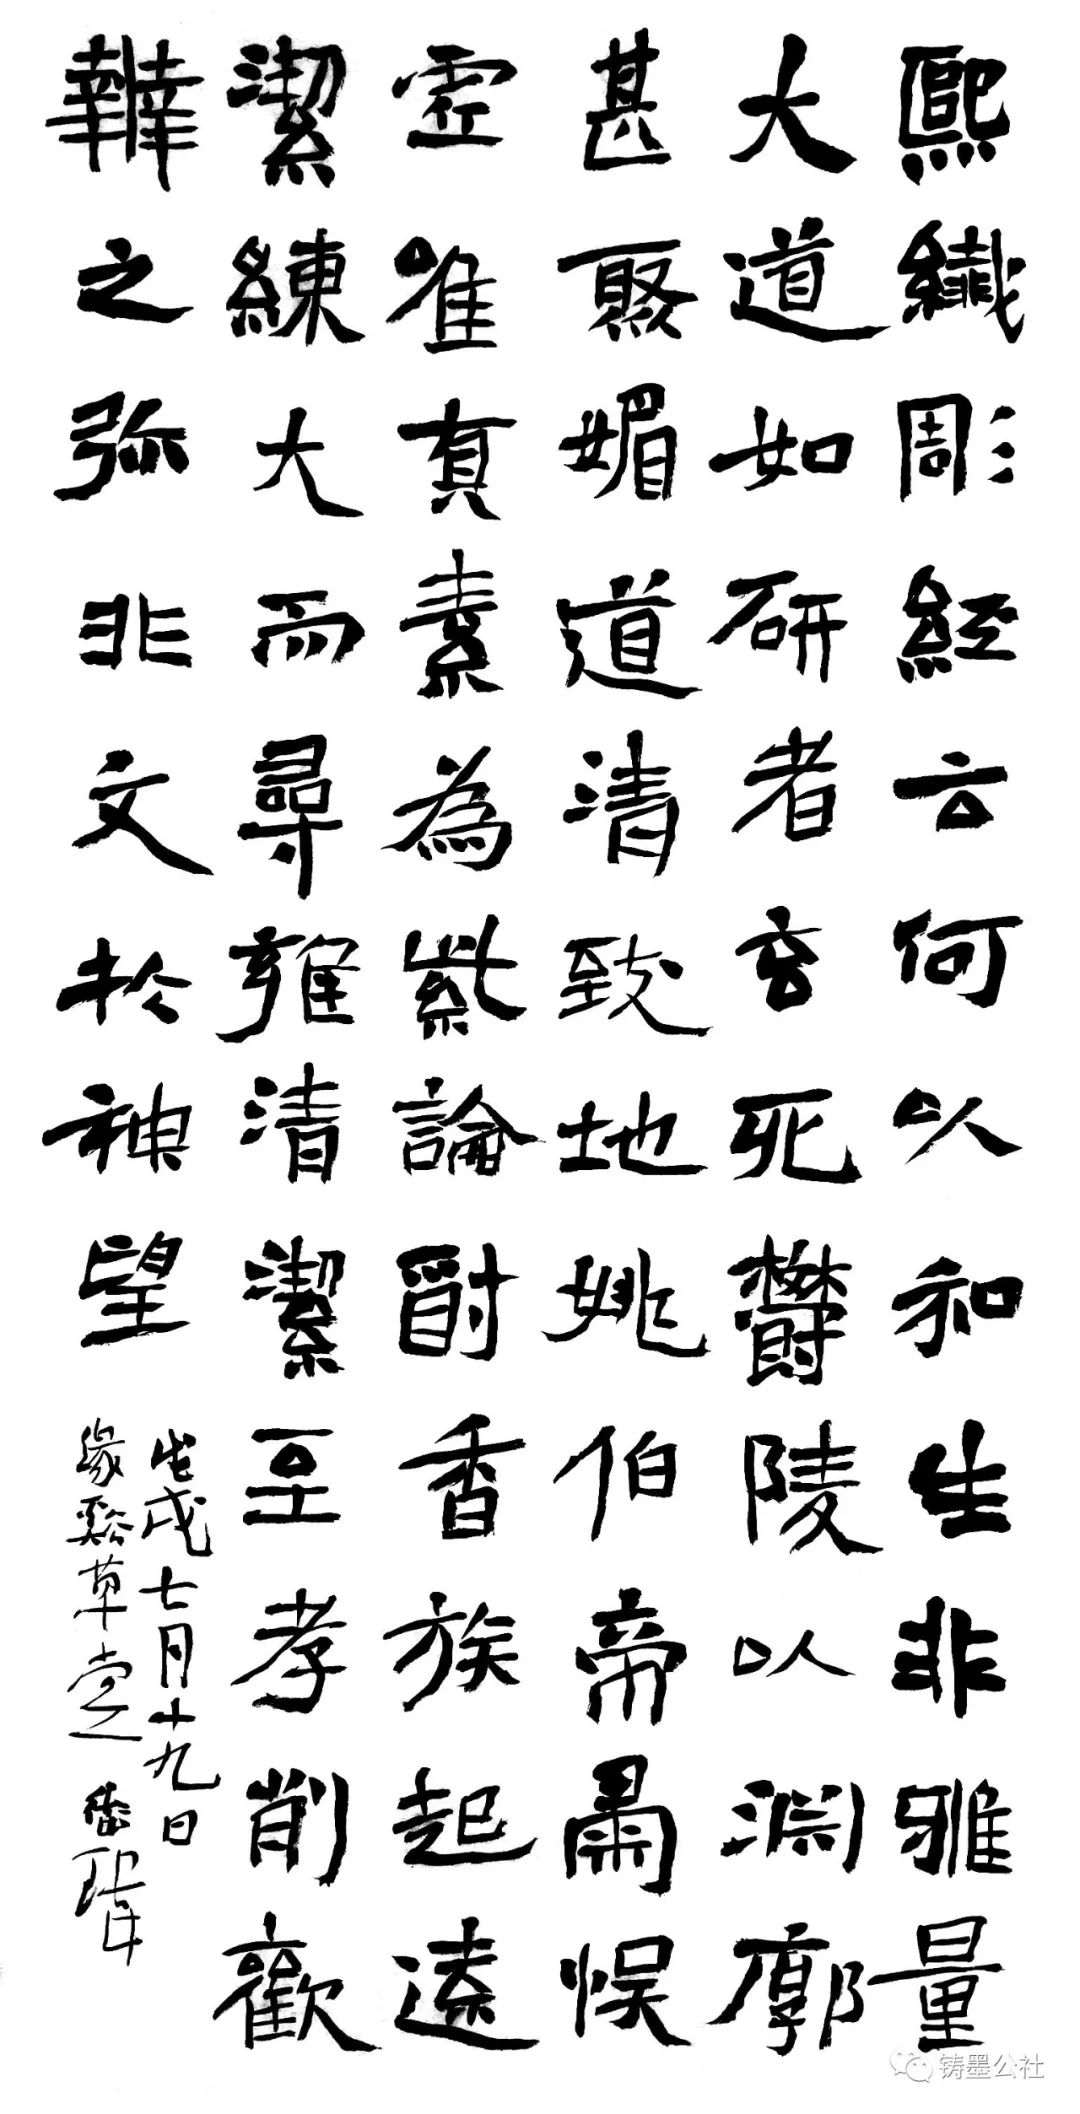 熙纖彫經云何以和生非雅量
大道如研者玄死欝陵以淵廓
甚聚媚道清致地姚伯帝冑悮
虚唯真素為紫論爵香族起遠
潔練大而尋雍清潔至孝削歡
之弥非文於神望
戊戌七月十九日
緣谿草堂
铸墨公社